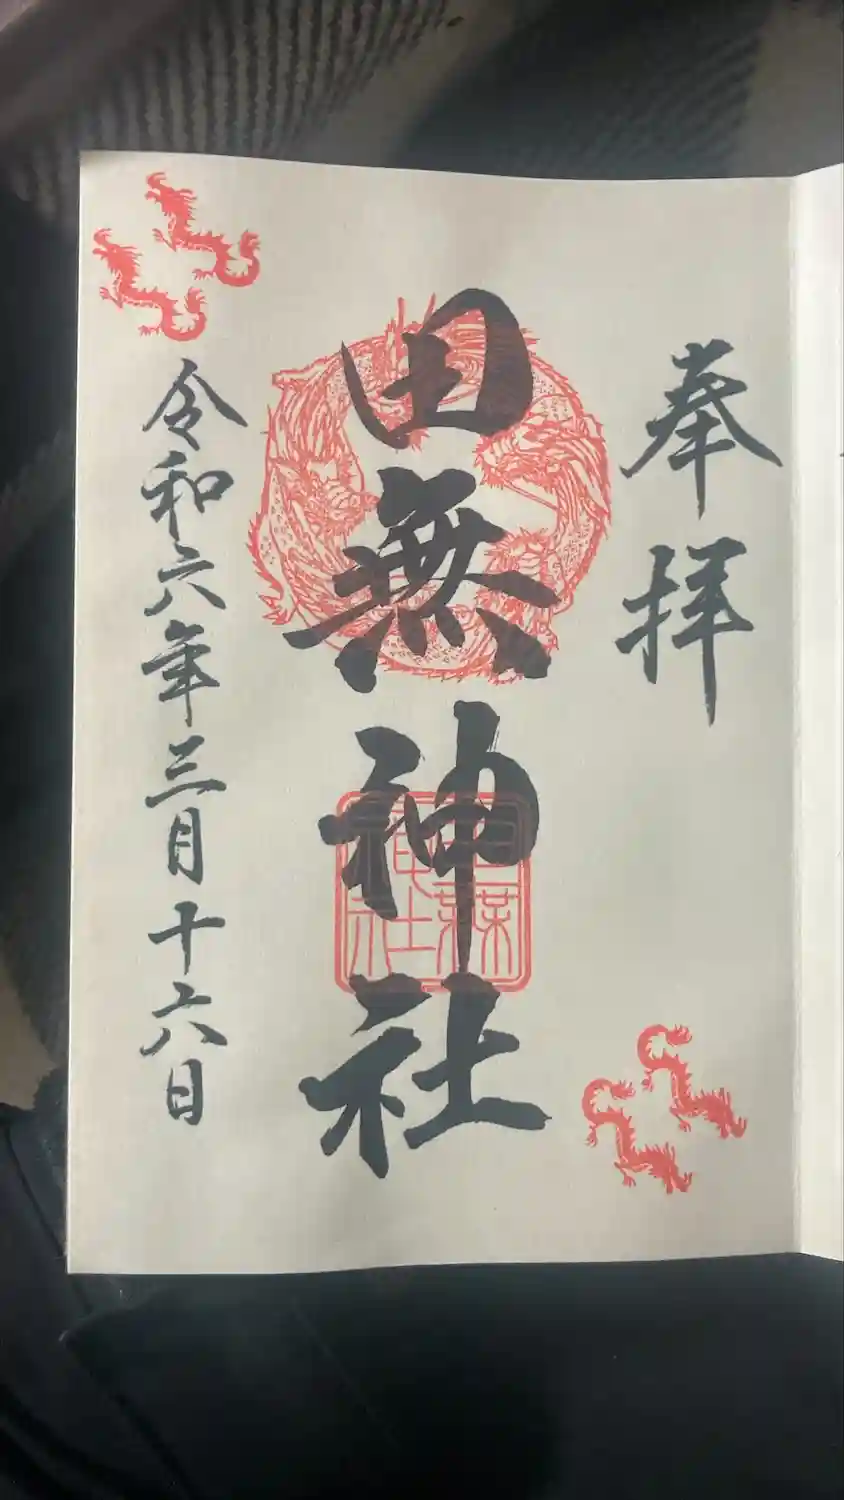 奉拝
田無神社
田無神社
令和六年三月十六日